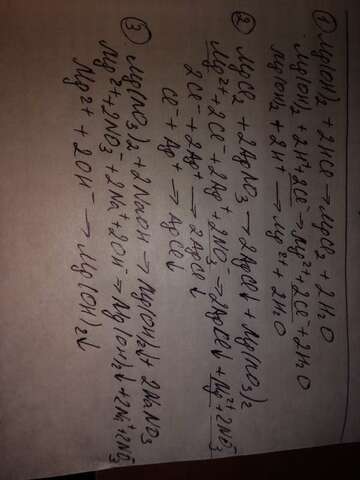 ① Mg(OH)₂ + 2HCl → MgCl₂ + 2H₂O
Mg(OH)₂ + 2H⁺ + 2Cl⁻ → Mg²⁺ + 2Cl⁻ + 2H₂O
Mg(OH)₂ + 2H⁺ → Mg²⁺ + 2H₂O
② MgCl₂ + 2AgNO₃ → 2AgCl↓ + Mg(NO₃)₂
Mg²⁺ + 2Cl⁻ + 2Ag⁺ + 2NO₃⁻ → 2AgCl↓ + Mg²⁺ + 2NO₃⁻
2Cl⁻ + 2Ag⁺ → 2AgCl↓
Cl⁻ + Ag⁺ → AgCl↓
③ Mg(NO₃)₂ + 2NaOH → Mg(OH)₂↓ + 2NaNO₃
Mg²⁺ + 2NO₃⁻ + 2Na⁺ + 2OH⁻ → Mg(OH)₂↓ + 2Na⁺ + 2NO₃⁻
Mg²⁺ + 2OH⁻ → Mg(OH)₂↓